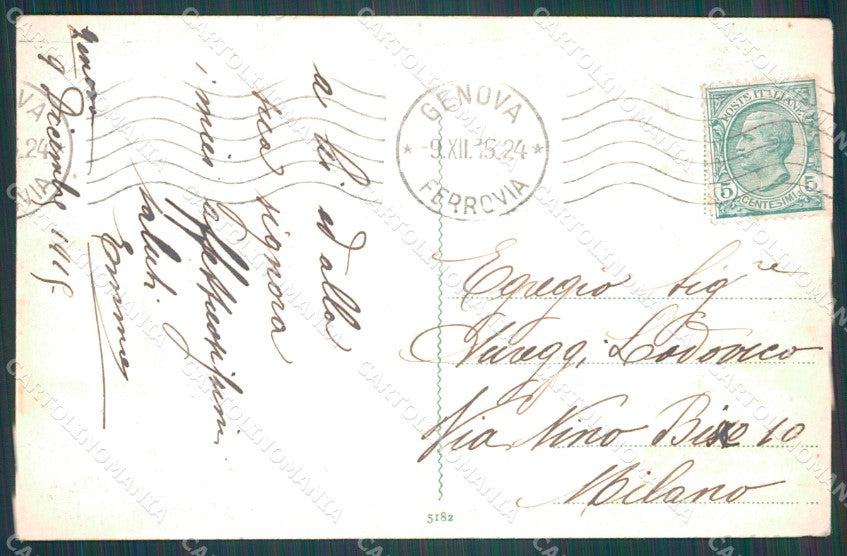 Genova
9 Dicembre 1915
a Lei ed alla
sua signora
i miei affettuosissimi
saluti.
GENOVA
9.XII.15.24
FERROVIA
POSTE ITALIANE
5 CENTESIMI 5
Egregio Sigʳᵉ
Lodovico
Via Nino Bixio 10
Milano
5182